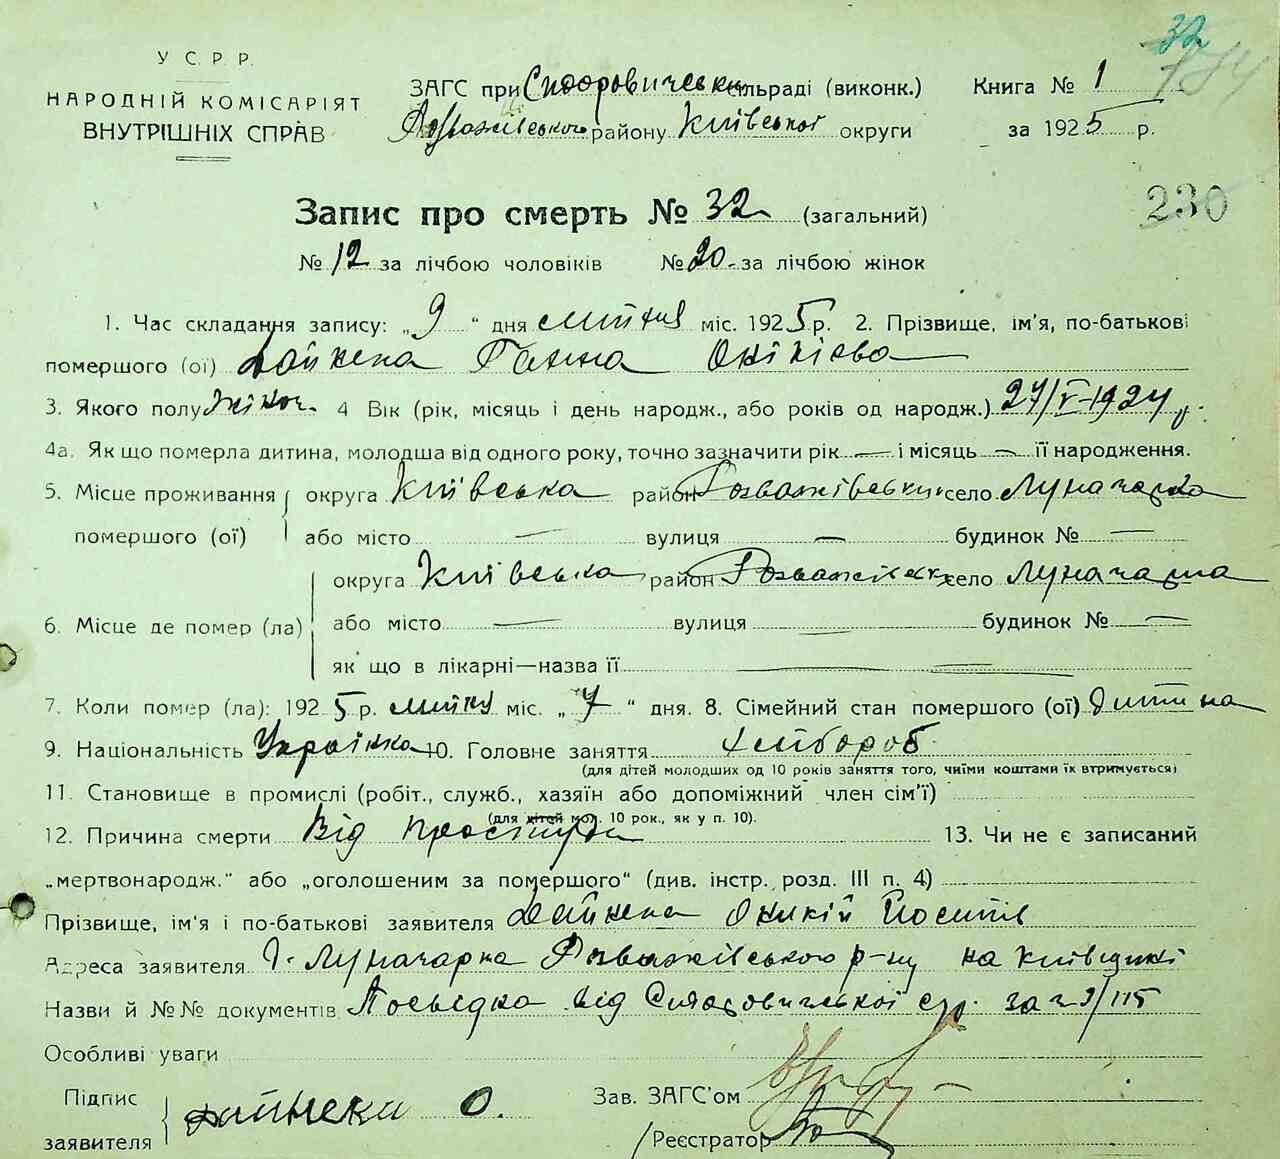 32
У С. Р. Р.
НАРОДНІЙ КОМІСАРІЯТ
ВНУТРІШНІХ СПРАВ
ЗАГС при Сидоровичськ. сільраді (виконк.)
Книга № 1
району Київської округи
за 1925 р.
230
Запис про смерть № 32 (загальний)
№ 12 за лічбою чоловіків № 20 за лічбою жінок
1. Час складання запису: „9“ дня міс. 1925 р. 2. Прізвище, ім'я, по-батькові
помершого (ої) Ганна
3. Якого полу жіноч. 4 Вік (рік, місяць і день народж., або років од народж.) 27/V-1924 р.
4а. Як що померла дитина, молодша від одного року, точно зазначити рік — і місяць — її народження.
5. Місце проживання округа Київська район Розважівськ село Луначарка
помершого (ої) або місто — вулиця — будинок № —
округа Київська район Розважівськ село Луначарка
6. Місце де помер (ла) або місто — вулиця — будинок № —
як що в лікарні—назва її —
7. Коли помер (ла): 1925 р. міс. „7“ дня. 8. Сімейний стан помершого (ої) дитина
9. Національність Українка 10. Головне заняття хлібороб
(для дітей молодших од 10 років заняття того, чиїми коштами їх втримується)
11. Становище в промислі (робіт., служб., хазяїн або допоміжний член сім'ї)
(для дітей мол. 10 рок., як у п. 10).
12. Причина смерти Від простуди 13. Чи не є записаний
„мертвонародж.“ або „оголошеним за помершого“ (див. інстр. розд. III п. 4)
Прізвище, ім'я і по-батькові заявителя Йосипів
Адреса заявителя Луначарка Розважівського р-ну на Київщині
Назви й №№ документів Посьвідка від Сидоровичської с/р. за ч 9/115
Особливі уваги
Підпис
заявителя О.
Зав. ЗАГС'ом
Реєстратор